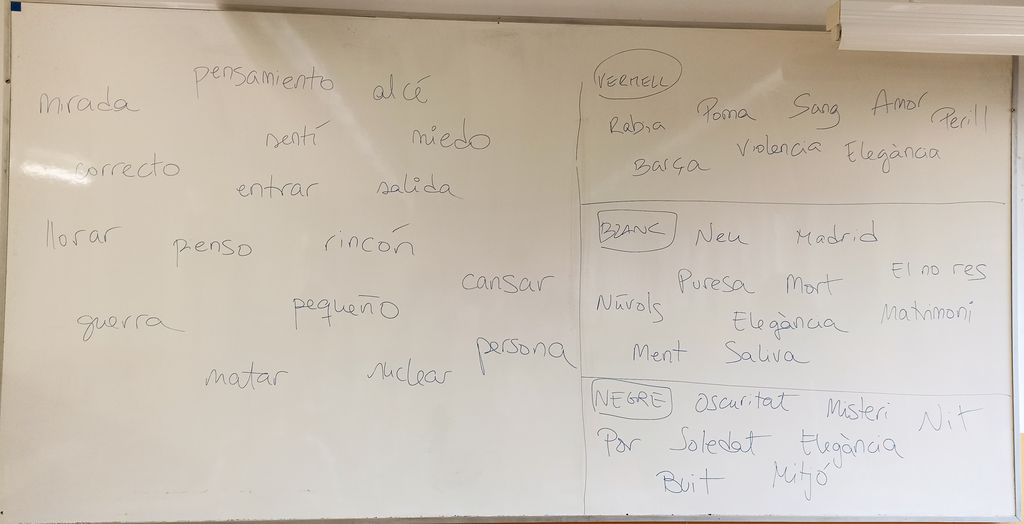 pensamiento
mirada alcé
sentí miedo
correcto
entrar salida
llorar
pienso rincón
cansar
guerra pequeño
persona
matar nuclear
VERMELL
Rabia Poma Sang Amor Perill
Barça Violencia Elegància
BLANC Neu Madrid
Puresa Mort El no res
Núvols Elegància Matrimoni
Ment Saliva
NEGRE Oscuritat Misteri Nit
Por Soledat Elegància
Buit Mitjó